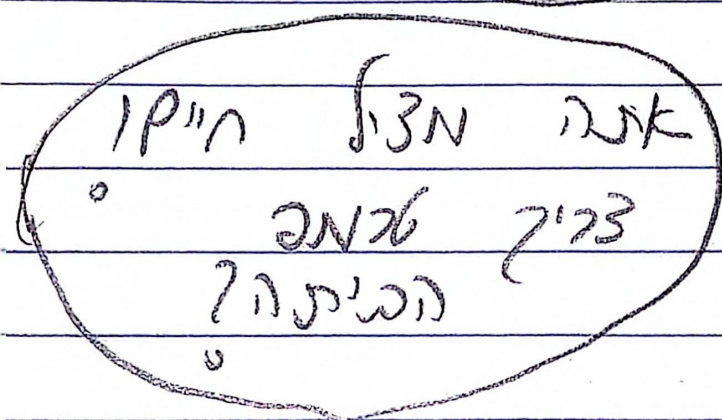 אתה מציל חיים!
צריך טרמפ
הביתה?